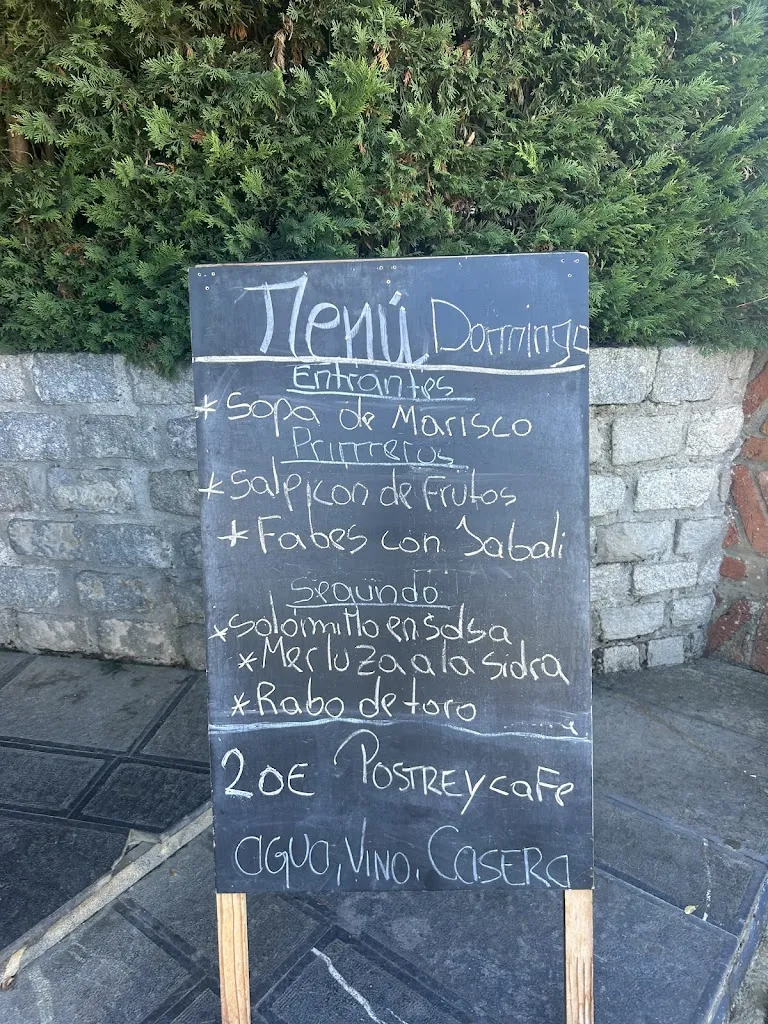 Menú Domingo
Entrantes
* Sopa de Marisco
Primeros
* Salpicon de Frutos
* Fabes con Jabali
Segundo
* Solomillo en Salsa
* Merluza a la sidra
* Rabo de toro
20€ Postre y café
agua, Vino. Casera